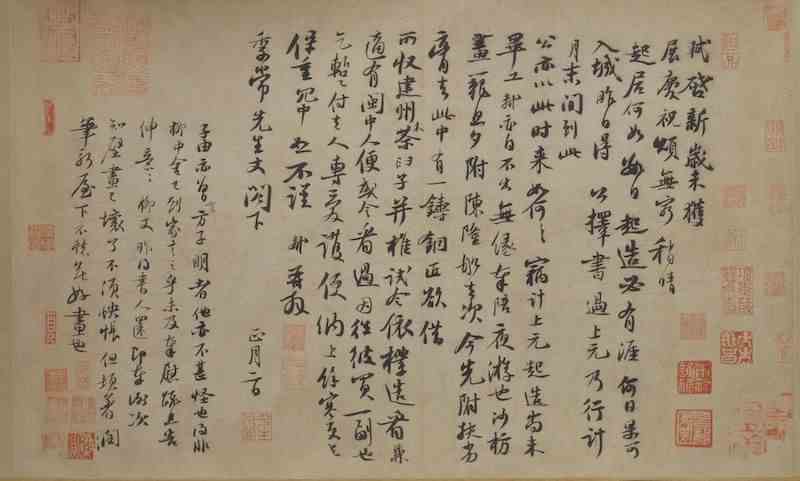 軾啟新歲未獲
展慶祝頌無窮稍晴
起居何如數日起造必有涯何日果可
入城昨日得公擇書過上元乃行計
月末間到此
公亦以此時來如何々竊計上元起造尚未
畢工軾亦自不出無緣奉陪夜遊也沙枋
畫籠旦夕附陳隆舡去次今先附扶劣
膏去此中有一鑄銅匠欲借
所收建州木茶臼子并椎試令依樣造看兼
適有閩中人便或令看過因往彼買一副也
乞暫付去人專愛護便納上餘寒更乞
保重冗中恕不謹軾再拜
季常先生丈閣下
正月二日
子由亦曾言方子明者他亦不甚怪也得非
柳中舍已到家言之乎未及奉慰疏且告
伸意々柳丈昨得書人還即奉謝次
知壁畫已壞了不須怏悵但頓著潤
筆新屋下不愁無好畫也